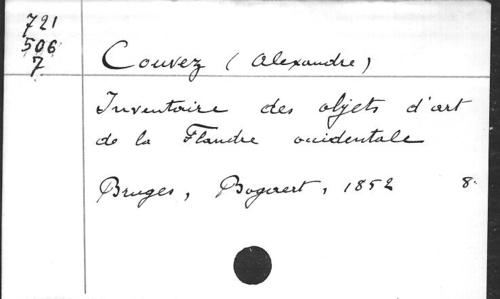 721
506
7
Couvez (Alexandre)
Inventaire des objets d'art
de la Flandre occidentale
Bruges, Bogaert, 1852 8.